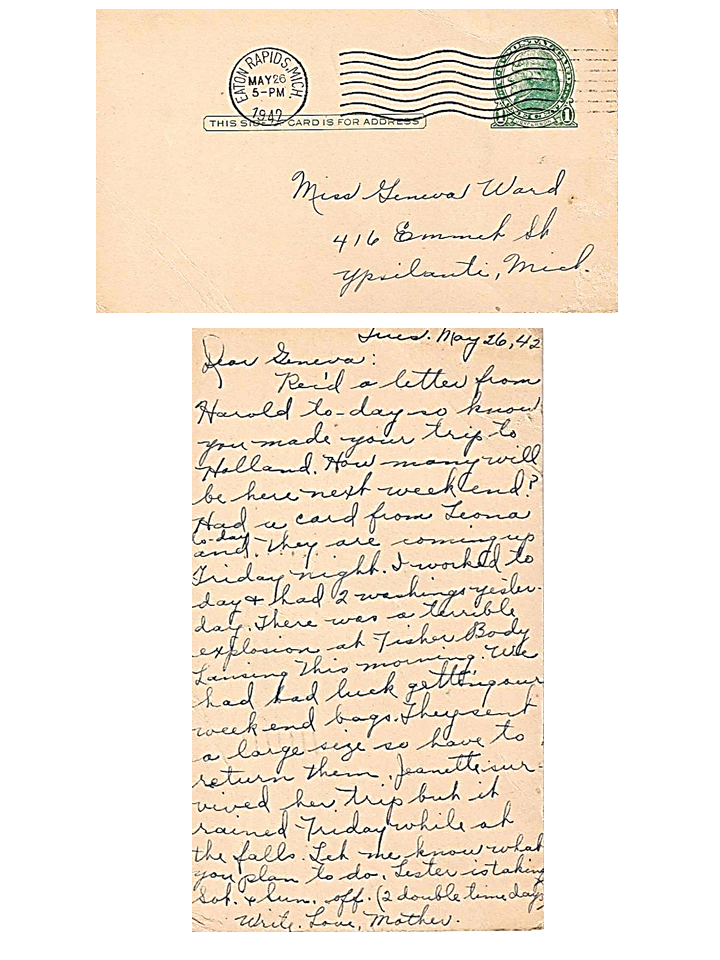 EATON RAPIDS, MICH.
MAY 26
5-PM
1942
THIS SIDE OF CARD IS FOR ADDRESS
1 1
Miss Geneva Ward
416 Emmet St
Ypsilanti, Mich.
Tues. May 26, 42
Dear Geneva:
Rec'd a letter from
Harold to-day so know
you made your trip to
Holland. How many will
be here next week end?
Had a card from Leona
to-day
and they are coming up
Friday night. I worked to
day & had 2 washings yester-
day. There was a terrible
explosion at Fisher Body
Lansing this morning. We
had bad luck getting our
week end bags. They sent
a large size so have to
return them. Jeanette sur-
vived her trip but it
rained Friday while at
the falls. Let me know what
you plan to do. Lester is taking
Sat. & Sun. off. (2 double time days)
Write. Love, Mother.